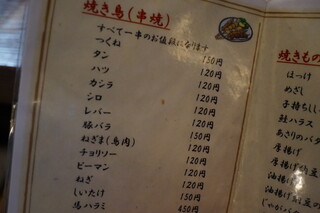 焼き鳥(串焼)
すべて一串のお値段になります
つくね 150円
タン 120円
ハツ 120円
カシラ 120円
シロ 120円
レバー 120円
豚バラ 120円
ねぎま(鳥肉) 150円
チョリソー 120円
ピーマン 120円
ねぎ 120円
しいたけ 150円
馬ハラミ 450円
焼きもの
ほっけ
めざし
子持ちしし
鮭ハラス
あさりのバタ
厚揚げ
油揚げ
じゃがバタ